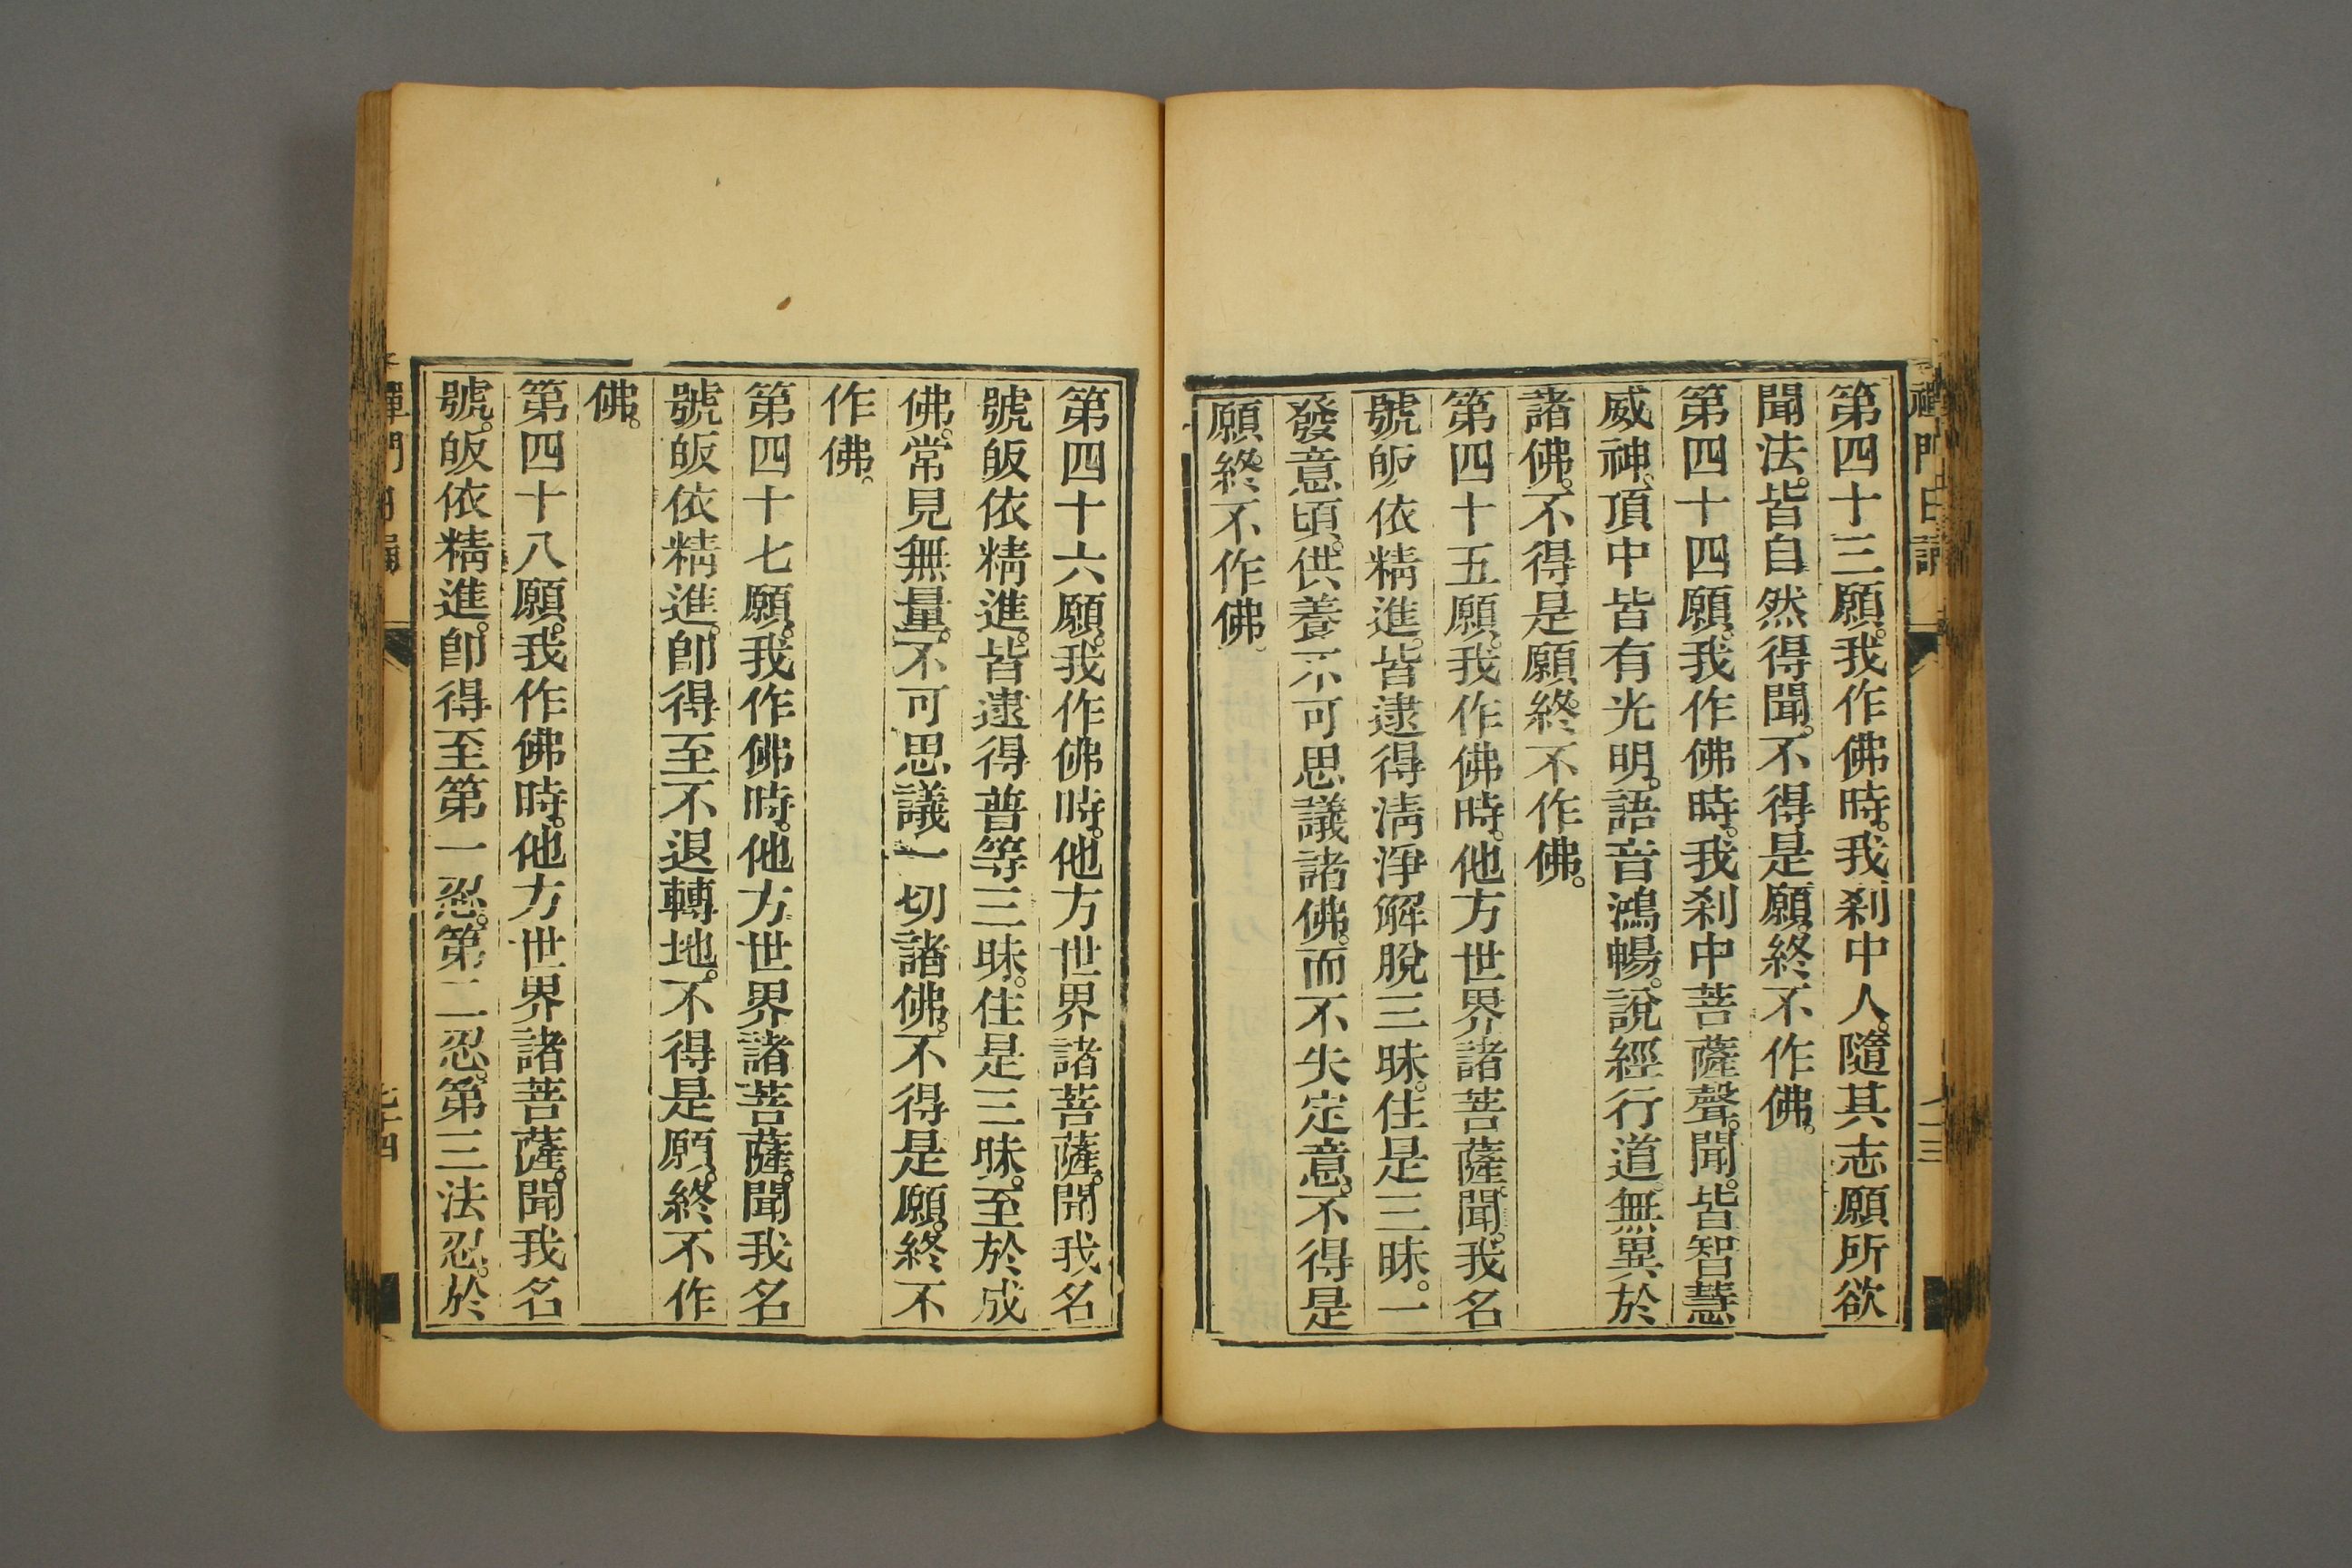 禪門日誦
第四十三願。我作佛時。我刹中人。隨其志願所欲
聞法。皆自然得聞。不得是願。終不作佛。
第四十四願。我作佛時。我刹中菩薩聲聞。皆智慧
威神。頂中皆有光明。語音鴻暢。說經行道。無異於
諸佛。不得是願。終不作佛。
第四十五願。我作佛時。他方世界諸菩薩。聞我名
號。皈依精進。皆逮得清淨解脫三昧。住是三昧。一
發意頃。供養不可思議諸佛。而不失定意。不得是
願。終不作佛。
第四十六願。我作佛時。他方世界諸菩薩。聞我名
號皈依精進。皆逮得普等三昧。住是三昧。至於成
佛。常見無量。不可思議一切諸佛。不得是願。終不
作佛。
第四十七願。我作佛時。他方世界諸菩薩。聞我名
號皈依精進。即得至不退轉地。不得是願。終不作
佛。
第四十八願。我作佛時。他方世界諸菩薩。聞我名
號。皈依精進。即得至第一忍。第二忍。第三法忍。於
禪門日誦
七十四